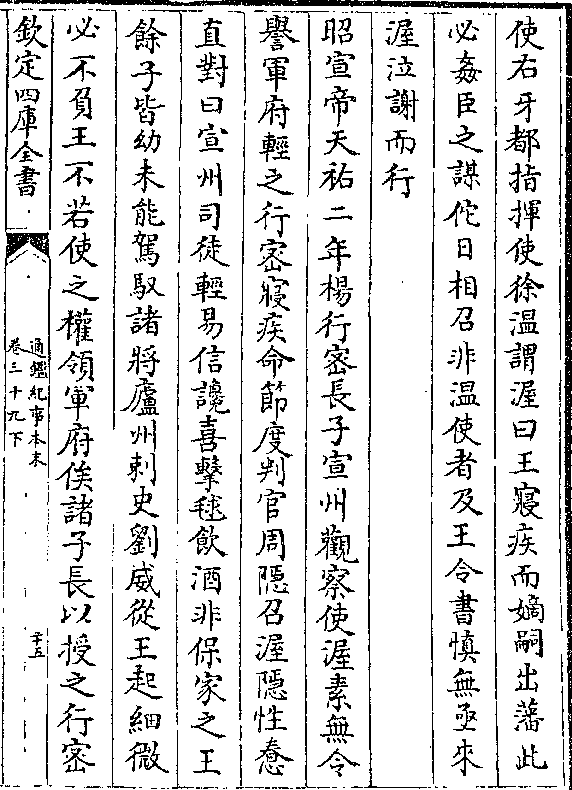 使右牙都指揮使徐溫謂渥曰王寢疾而嫡嗣出藩此
必姦臣之謀佗日相召非溫使者及王令書慎無亟來
渥泣謝而行
昭宣帝天祐二年楊行密長子宣州觀察使渥素無令
譽軍府輕之行密寢疾命節度判官周隱召渥隱性憃
直對曰宣州司徒輕易信讒喜擊毬飲酒非保家之王
餘子皆幼未能駕馭諸將廬州刺史劉威從王起細微
必不負王不若使之權領軍府俟諸子長以授之行密
欽定四庫全書
通鑑紀事本末
卷三十九下
十五